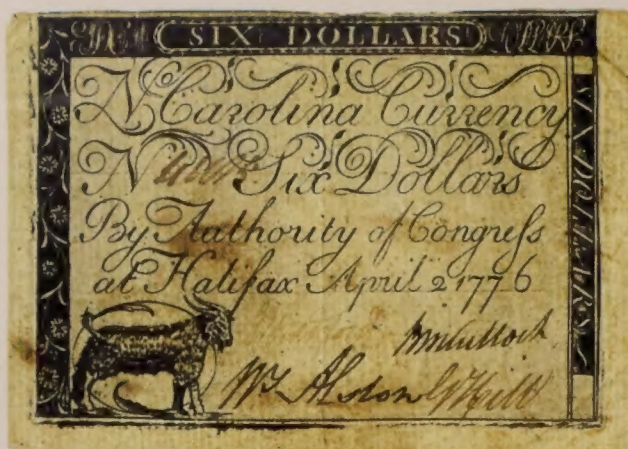 SIX DOLLARS
N Carolina Currency
No Six Dollars
By Authority of Congreſs
at Halifax April 2 1776
Wm Alston G Hill
SIX DOLLARS